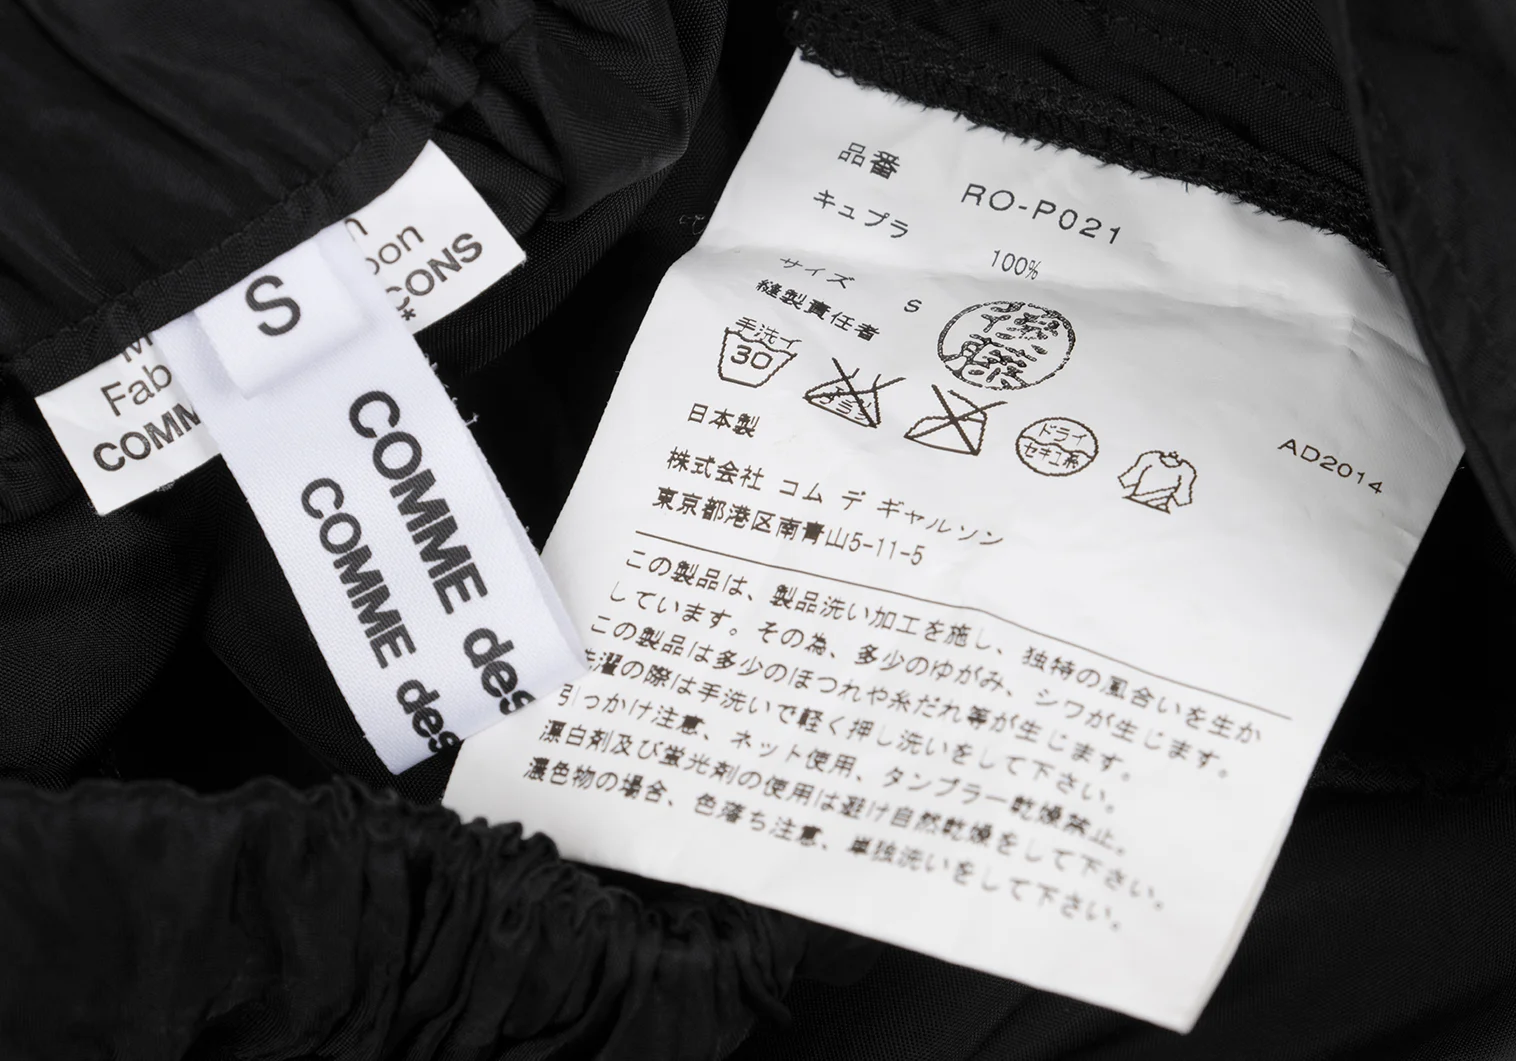 S
COMME des
COMME des
Fab
COMM
on
CONS
品番 RO-P021
キュプラ 100%
サイズ S
縫製責任者 後藤
手洗イ
30
ドライ
セキユ系
日本製
AD2014
株式会社 コム デ ギャルソン
東京都港区南青山5-11-5
この製品は、製品洗い加工を施し、独特の風合いを生か
しています。その為、多少のゆがみ、シワが生じます。
この製品は多少のほつれや糸だれ等が生じます。
洗濯の際は手洗いで軽く押し洗いをして下さい。
引っかけ注意、ネット使用、タンブラー乾燥禁止。
漂白剤及び蛍光剤の使用は避け自然乾燥をして下さい。
濃色物の場合、色落ち注意、単独洗いをして下さい。